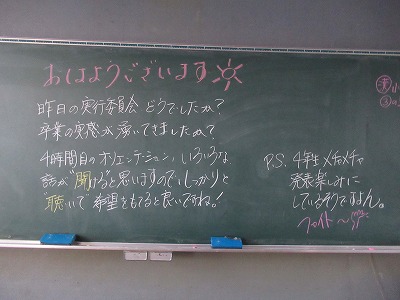 おはようございます
昨日の実行委員会どうでしたか？
卒業の実感が湧いてきましたか？
4時間目のオリエンテーション、いろいろな
話が"聞ける"と思いますので、しっかりと
"聴いて"希望をもてると良いですね！
P.S. 4年生メチャメチャ
発表楽しみに
しているそうですよん。
ファイト〜